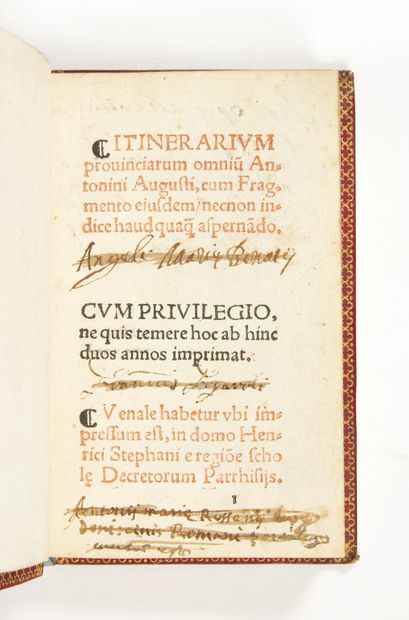 ITINERARIVM
prouinciarum omniũ An-
tonini Augusti, cum Frag-
mento eiusdem/necnon in-
dice haud quaq̃ aspernãdo.
Angeli Mariæ
CVM PRIVILEGIO,
ne quis temere hoc ab hinc
duos annos imprimat.
Venale habetur vbi im-
pressum est, in domo Hen-
rici Stephani e regiõe scho
lę Decretorum Parrhisijs.
Antonij mariæ